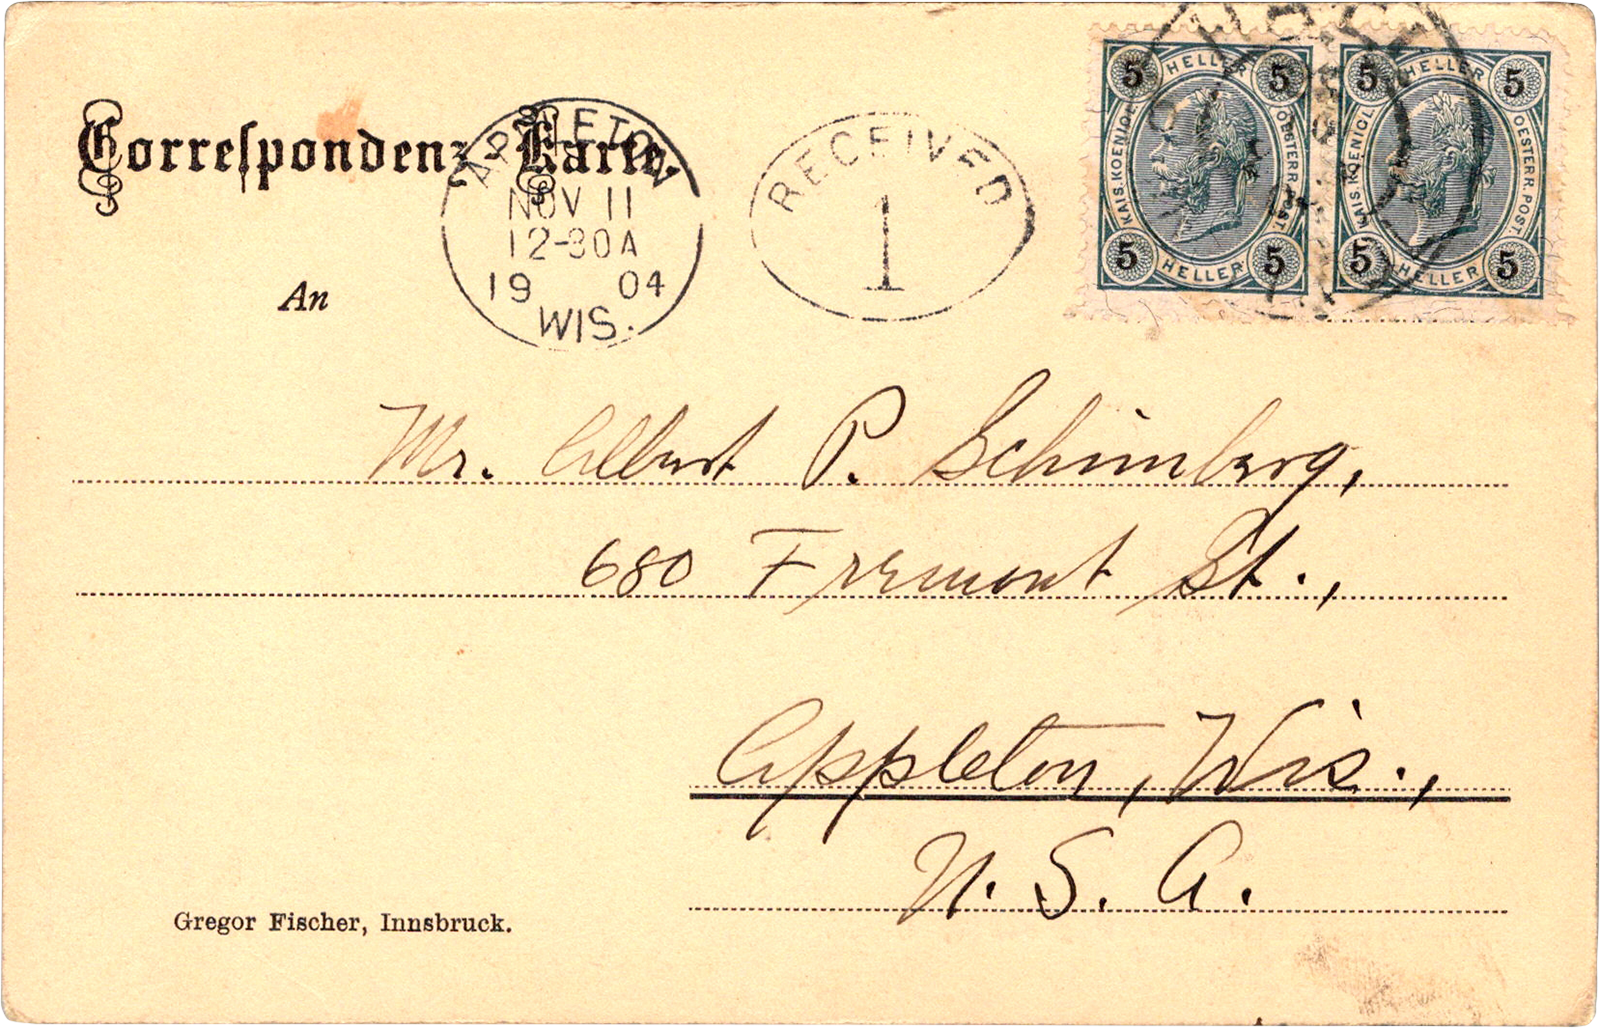 Correſpondenz-Karte.
APPLETON
NOV 11
12-30A
19 04
WIS.
RECEIVED
1
5 HELLER 5
KAIS. KOENIGL. OESTERR. POST.
5 HELLER 5
5 HELLER 5
KAIS. KOENIGL. OESTERR. POST.
5 HELLER 5
An
Mr. Albert P. Schimberg,
680 Fremont St.,
Appleton, Wis.,
U. S. A.
Gregor Fischer, Innsbruck.